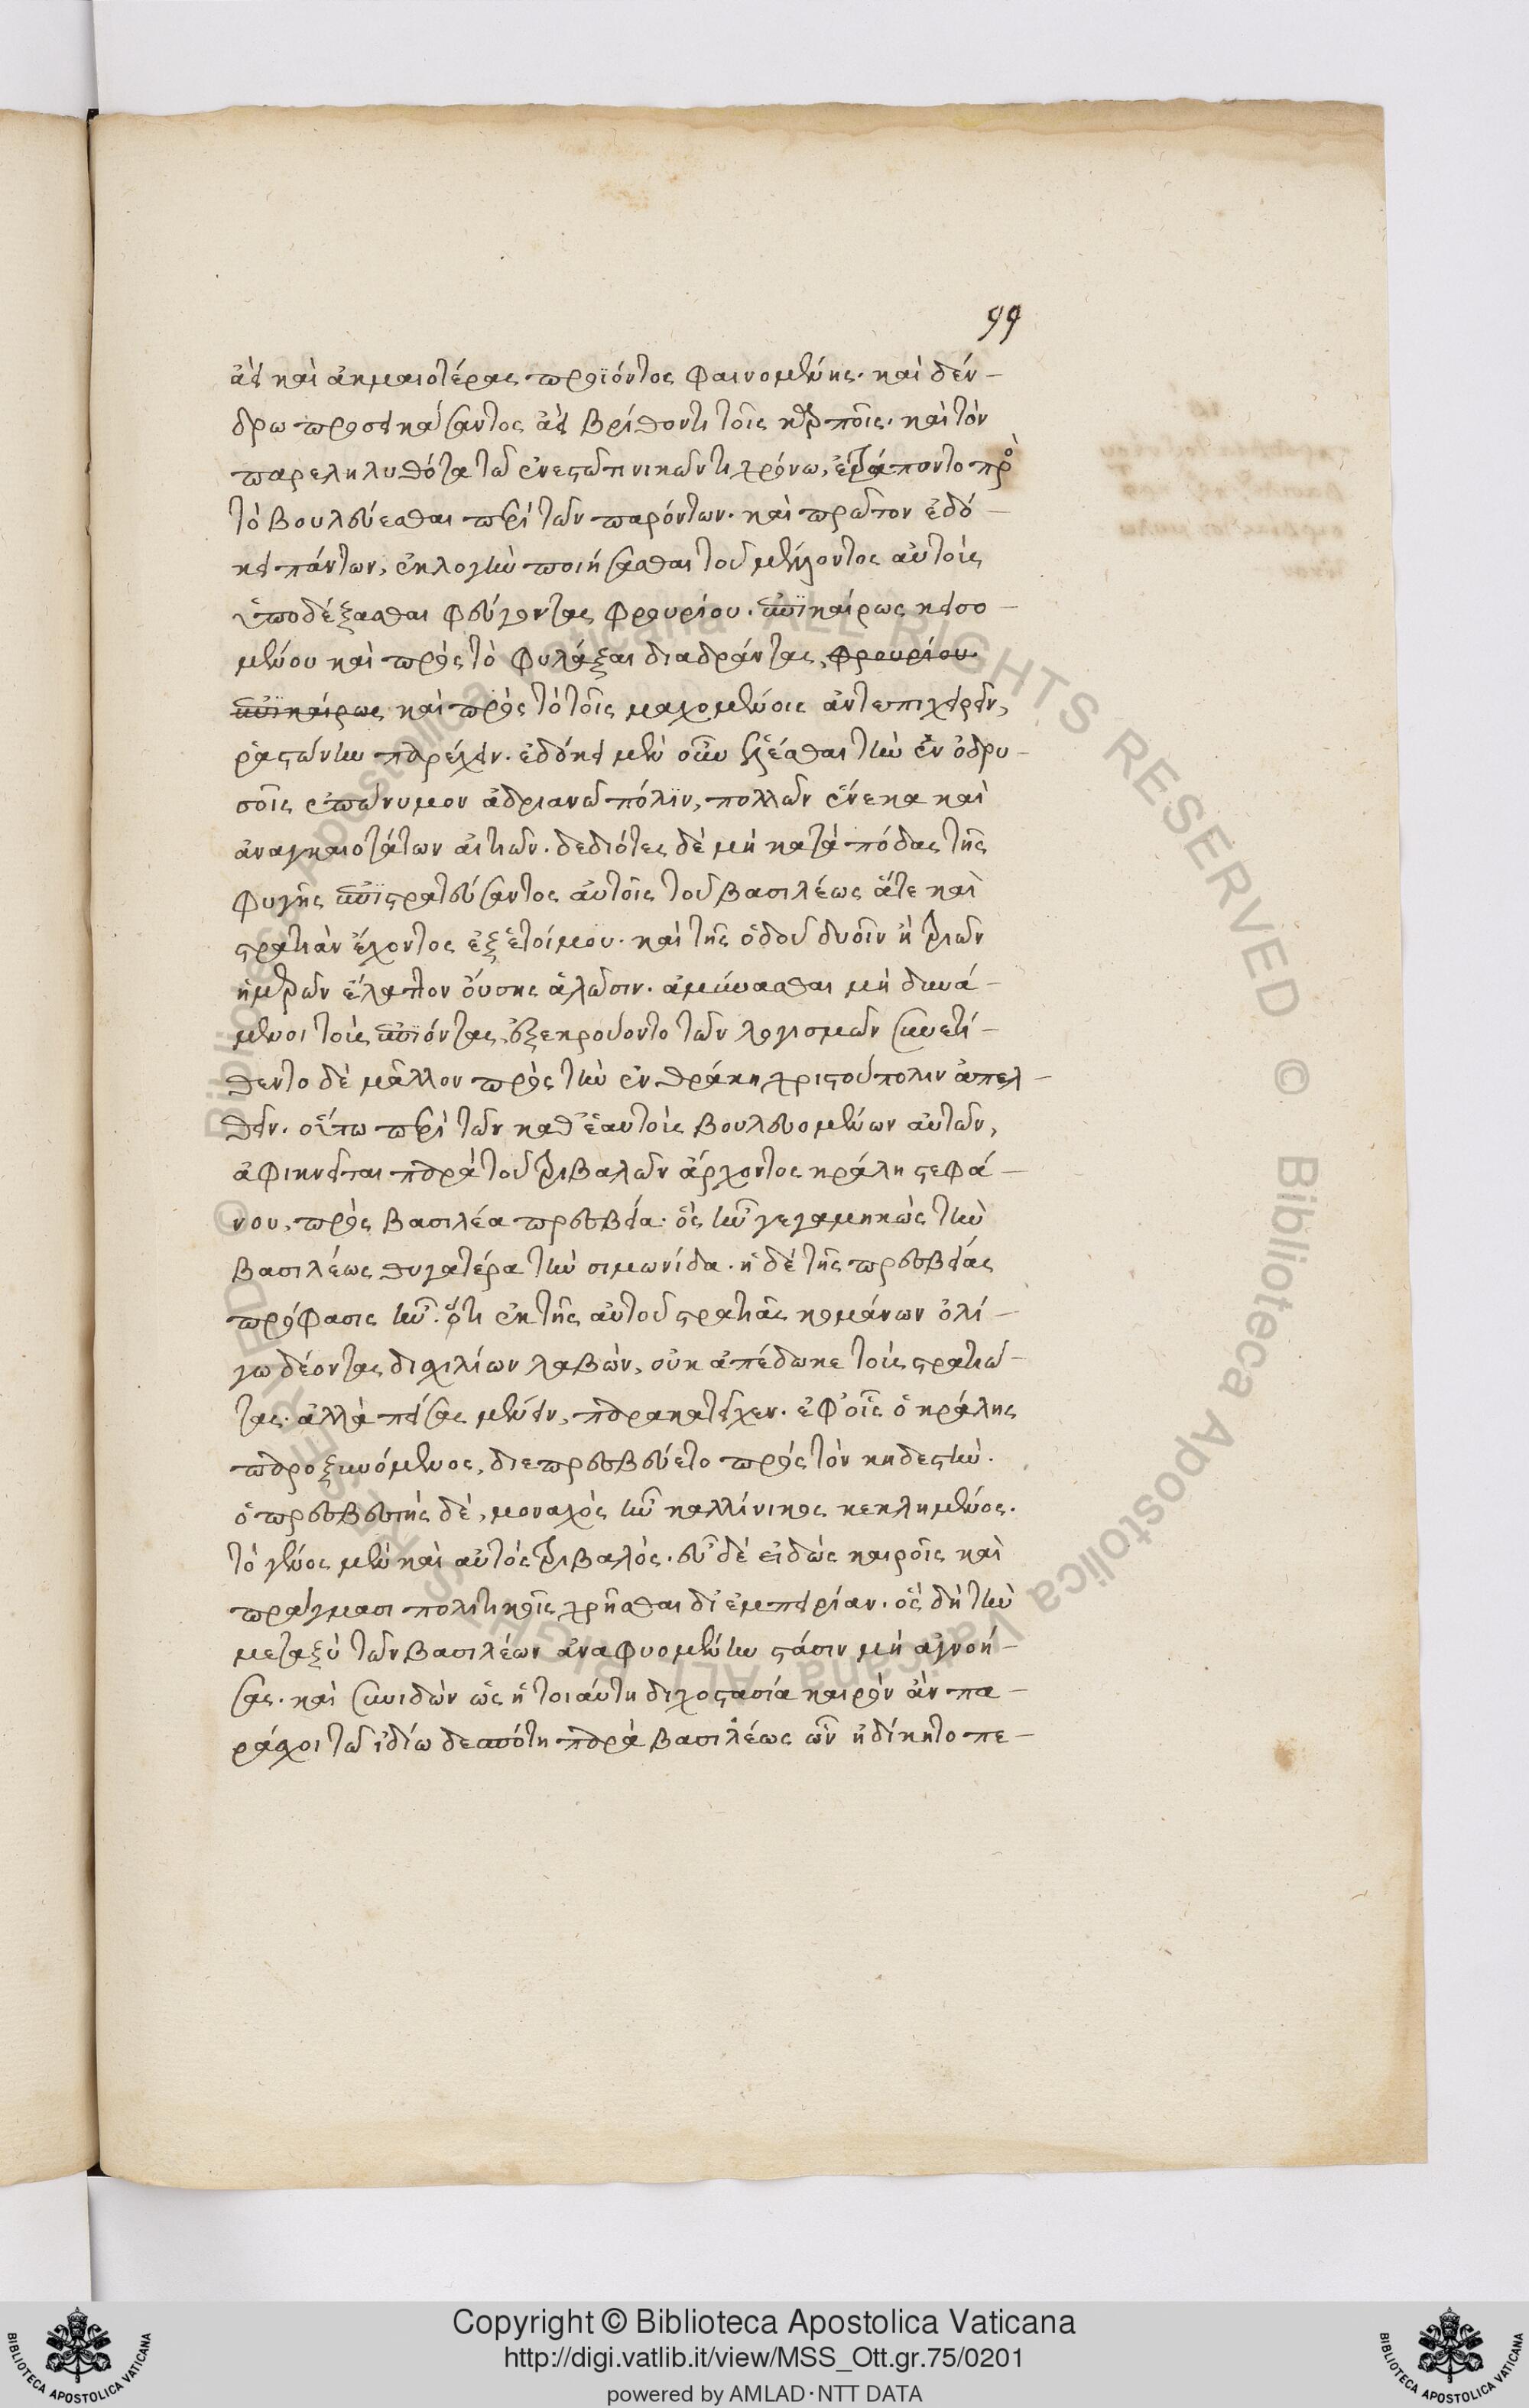 99
ἀεὶ καὶ ἀκμαιοτέρας προϊόντος φαινομένης. καὶ δέν-
δρω προσεικάσαντος ἀεὶ βρίθοντι τοῖς καρποῖς. καὶ τὸν
παρεληλυθότα τῶ ἐνεστῶτι νικῶντι χρόνω, ἐτράποντο πρὸ
τὸ βουλεύεσθαι περὶ τῶν παρόντων. καὶ πρῶτον ἐδό-
κει πάντων, ἐκλογὴν ποιήσασθαι τοῦ μέλλοντος αὐτοὺς
ὑποδέξασθαι φεύγοντας φρουρίου. ἐπικαίρως κεισο-
μένου καὶ πρὸς τὸ φυλάξαι διαδράντας, φρουρίου.
ἐπικαίρως καὶ πρὸς τὸ τοῖς μαχομένοις ἀντεπιχειρεῖν,
ῥαστώνην παρέχειν. ἐδόκει μὲν οὖν ἑλέσθαι τὴν ἐν ὀδρυ-
σοῖς ἐπώνυμον ἀδριανῶ πόλιν, πολλῶν ἕνεκα καὶ
ἀναγκαιοτάτων αἰτιῶν. δεδιότες δὲ μὴ κατὰ πόδας τῆς
φυγῆς ἐπιστρατεύσαντος αὐτοῖς τοῦ βασιλέως ἅτε καὶ
στρατιὰν ἔχοντος ἐξ ἑτοίμου. καὶ τῆς ὁδοῦ δυσῖν ἢ τριῶν
ἡμερῶν ἔλαττον οὔσης ἁλῶσιν. ἀμύνασθαι μὴ δυνά-
μενοι τοὺς ἐπιόντας, ἐξεκρούοντο τῶν λογισμῶν συνετί-
θεντο δὲ μᾶλλον πρὸς τὴν ἐν θράκη χριστούπολιν ἀπελ-
θεῖν. οὔπω περὶ τῶν καθ' ἑαυτοὺς βουλευομένων αὐτῶν,
ἀφικνεῖται παρὰ τοῦ τριβαλῶν ἄρχοντος κράλη στεφά-
νου, πρὸς βασιλέα πρεσβεία. ὃς ἦν γεγαμηκὼς τὴν
βασιλέως θυγατέρα τὴν σιμωνίδα. ἡ δὲ τῆς πρεσβείας
πρόφασις ἦν. ὅτι ἐκ τῆς αὐτοῦ στρατιᾶς κομάνων ὀλί-
γω δέοντας δισχιλίων λαβὼν, οὐκ ἀπέδωκε τοὺς στρατιώ-
τας. ἀλλὰ πείσας μένειν, παρακατεῖχεν. ἐφ' οἷς ὁ κράλης
παροξυνόμενος, διεπρεσβεύετο πρὸς τὸν κηδεστήν.
ὁ πρεσβευτὴς δὲ, μοναχὸς ἦν καλλίνικος κεκλημένος.
τὸ γένος μὲν καὶ αὐτὸς τριβαλός. εὖ δὲ εἰδὼς καιροῖς καὶ
πράγμασι πολιτικοῖς χρῆσθαι δι' ἐμπειρίαν. ὃς δὴ τὴν
μεταξὺ τῶν βασιλέων ἀναφυομένην στάσιν μὴ ἀγνοή-
σας. καὶ συνιδὼν ὡς ἡ τοιαύτη διχοστασία καιρὸν ἂν πα-
ράσχοι τῶ ἰδίω δεσπότη παρὰ βασιλέως ὧν ἠδίκητο πε-
Copyright © Biblioteca Apostolica Vaticana
http://digi.vatlib.it/view/MSS_Ott.gr.75/0201
powered by AMLAD·NTT DATA